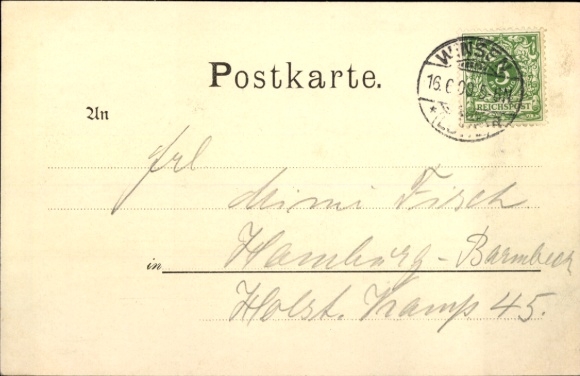 Postkarte.
WINSEN
16.6.00.5-6N
* (LUHE) *
5
REICHSPOST
An
Frl
Mimi Fisch
in Hamburg-Barmbeck
Holst. Kamp 45.